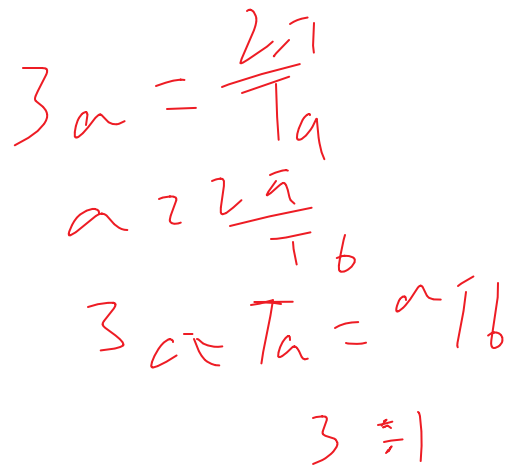 3a = 2π/Ta
a = 2π/Tb
3a Ta = aTb
3 ÷ 1